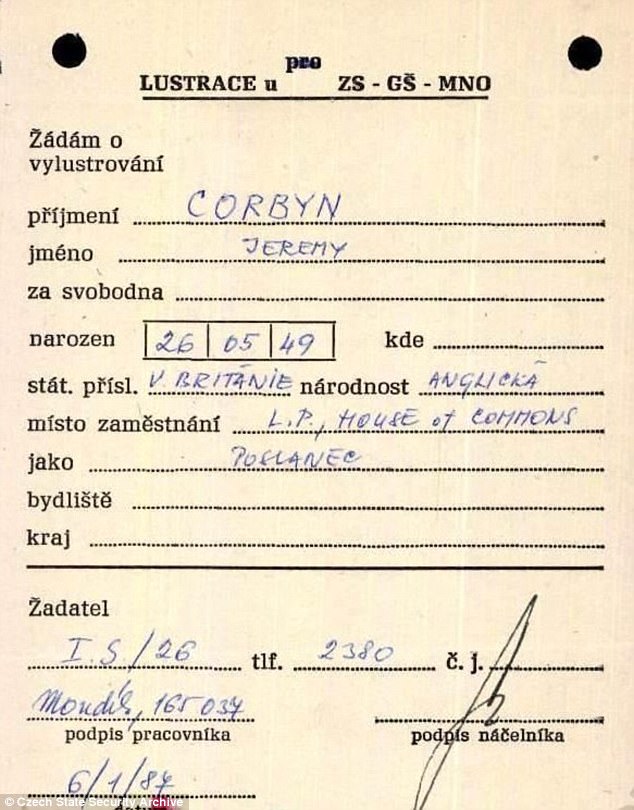 pro
LUSTRACE u ZS - GŠ - MNO
Žádám o
vylustrování
příjmení CORBYN
jméno JEREMY
za svobodna
narozen 26 05 49 kde
stát. přísl. V. BRITÁNIE národnost ANGLICKÁ
místo zaměstnání L.P., HOUSE of COMMONS
jako POSLANEC
bydliště
kraj
Žadatel
I. S./26 tlf. 2380 č. j.
165037
podpis pracovníka podpis náčelníka
6/1/87
© Czech State Security Archive